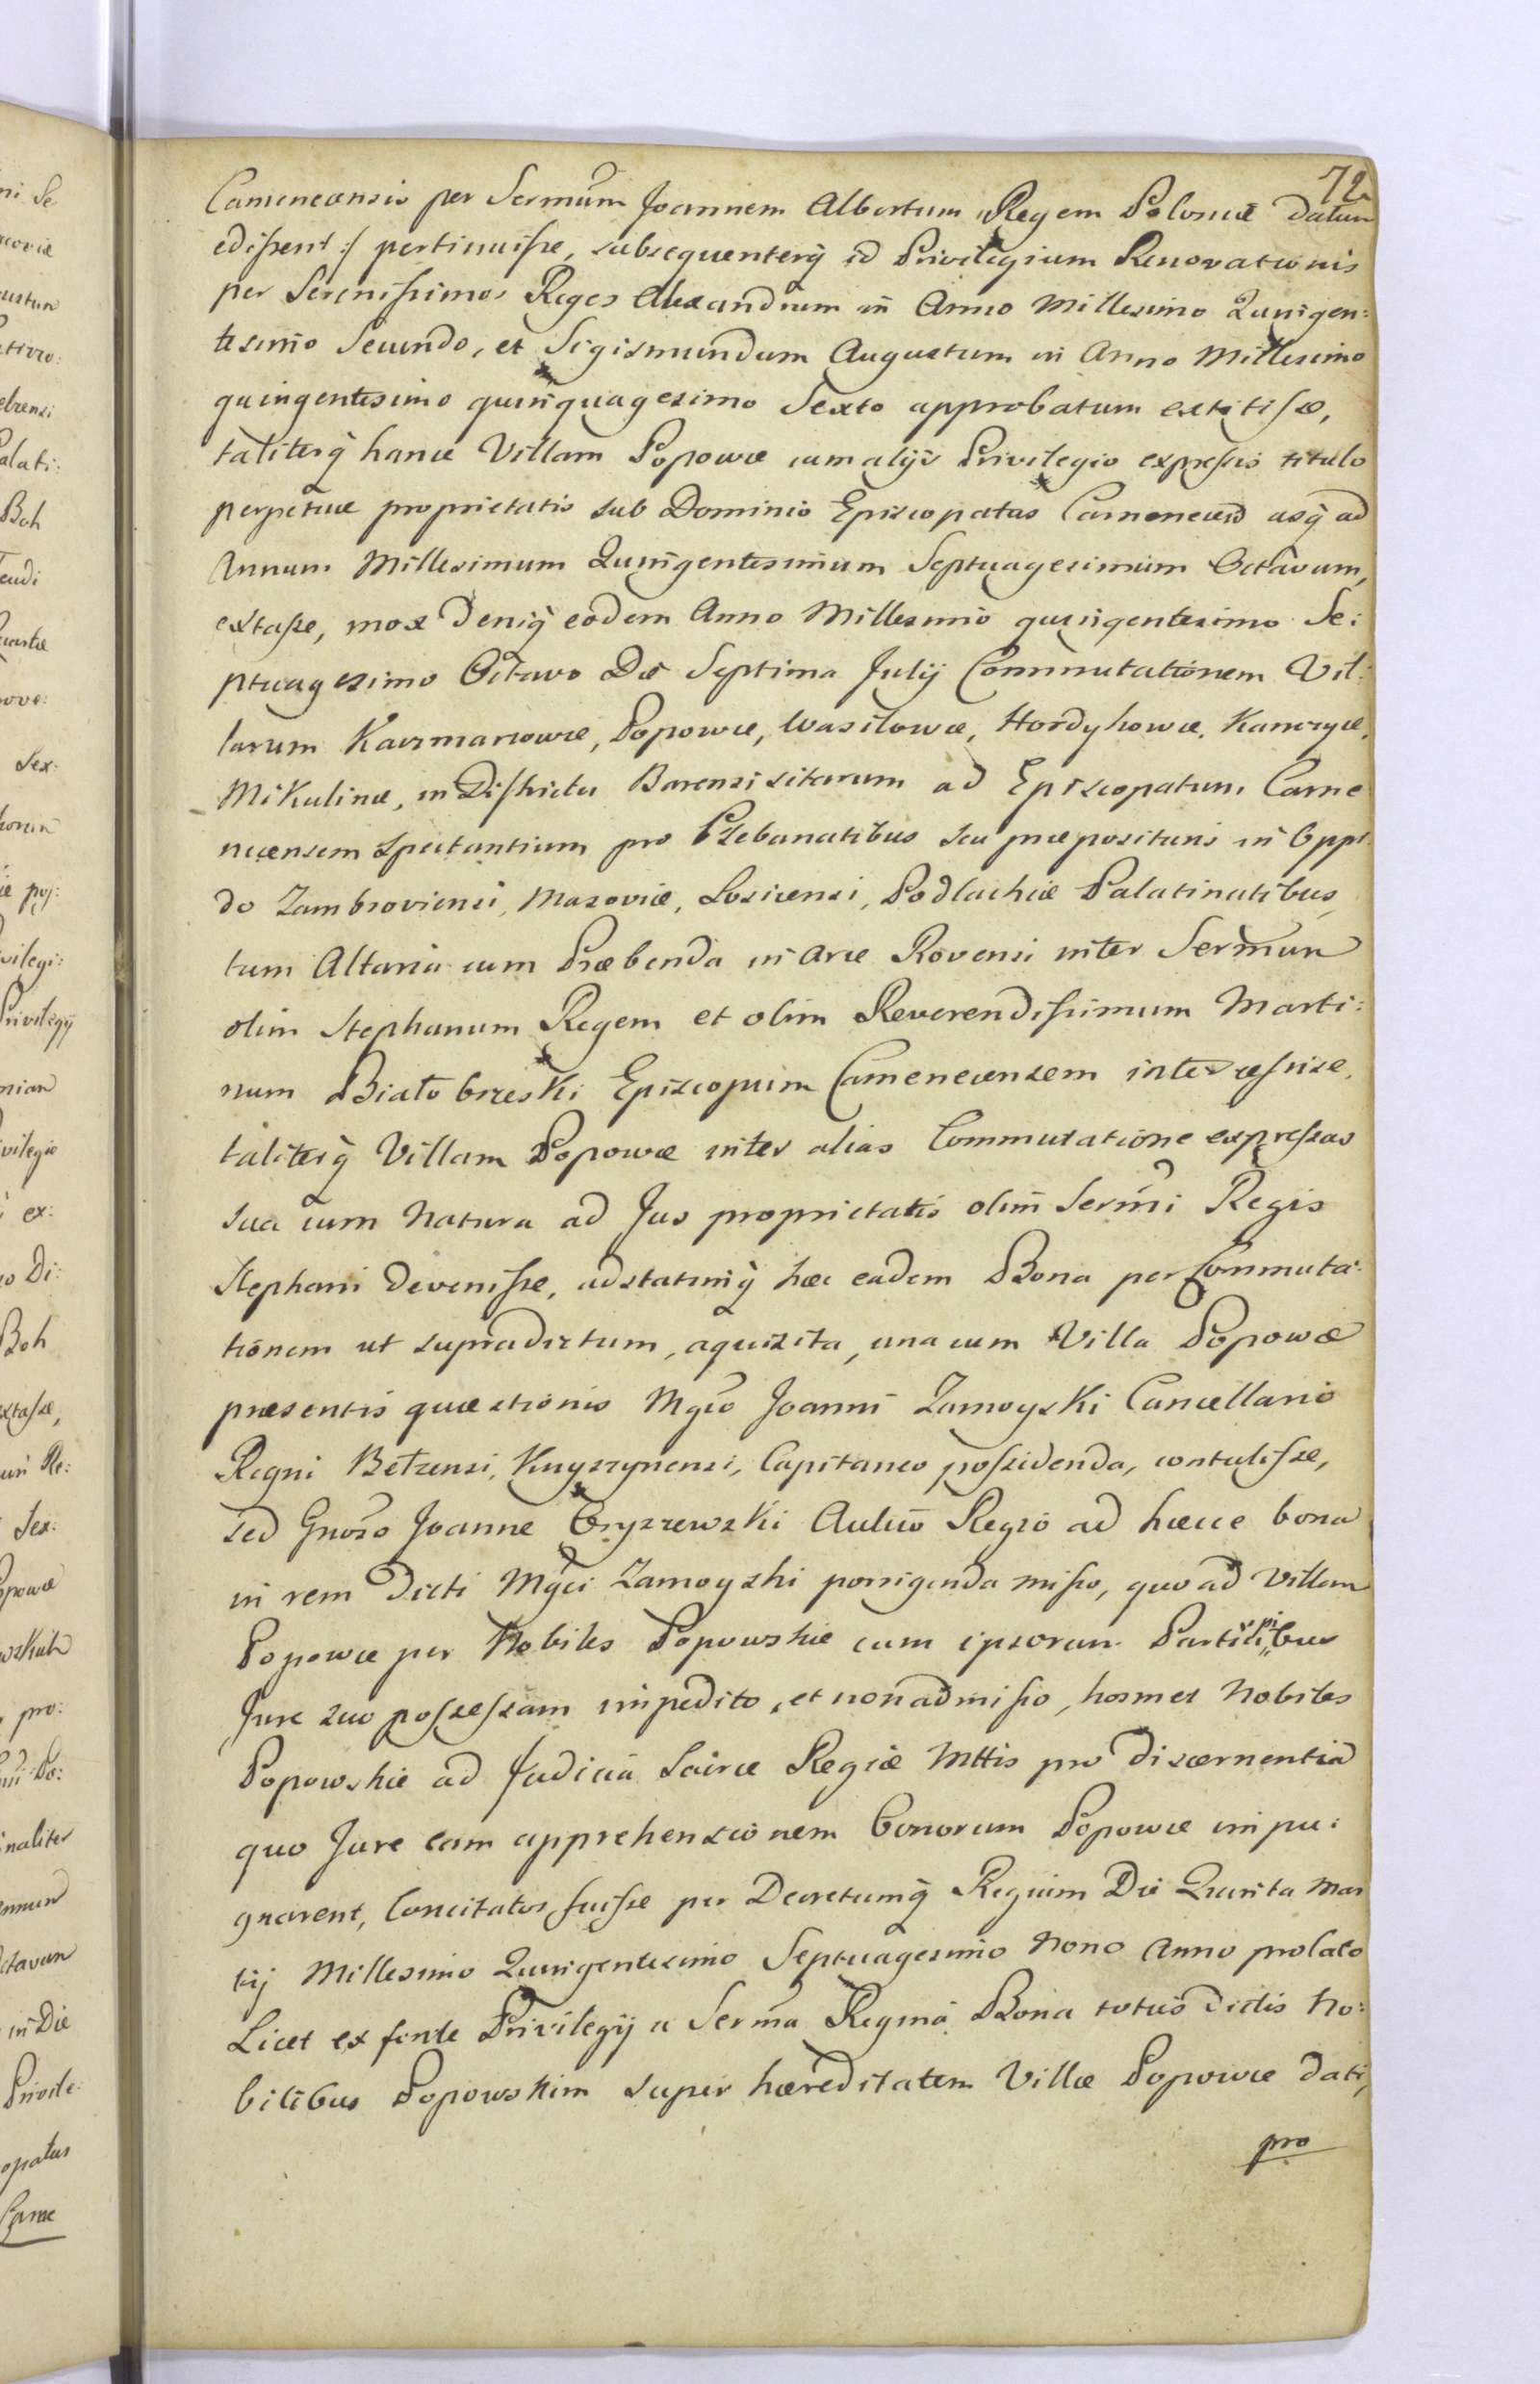 72
Camenecensis per Sermum Joannem Albertum Regem Poloniæ datum
edissent :/ pertinuisse, subsequenterq̃ id Privilegium Renovationis
per Serenissimos Reges Alexandrum in Anno Millesimo Quingen:
tesimo Secundo, et Sigismundum Augustum in Anno Millesimo
quingentesimo quinquagesimo Sexto approbatum extitisse,
taliterq̃ hance Villam Popowce cum alijs Privilegio expressis titulo
perpetuæ proprietatis sub Dominio Episcopatus Camenecen usq̃ ad
Annum Millesimum Quingentesimum Septuagesimum Octavum,
extasse, mox deniq̃ eodem Anno Millesimo quingentesimo Se:
ptuagesimo Octavo Die Septima Julij Commutationem Vil:
larum Kaczmarzowce, Popowce, Wasilowce, Hordyhowce, Kamczyce,
Mikulince, in Districtu Barensi sitarum ad Episcopatum Came
necensem spectantium pro Plebanatibus seu præposituris in Oppi
do Zambroviensi, Masoviæ, Losicensi, Podlachiæ Palatinatibus,
tum Altaria cum Præbenda in Arce Rovensi inter Sermum
olim Stephanum Regem et olim Reverendissimum Marti:
num Białobrzeski Episcopum Camenecensem intercessisse,
taliterq̃ Villam Popowce inter alias Commutatione expressas
sua cum Natura ad Jus proprietatis olim Sermi Regis
Stephani devenisse, adstatimq̃ hæc eadem Bona per Commuta:
tionem ut supradictum, aquisita, una cum Villa Popowce
præsentis quæstionis Mgco Joanni Zamoyski Cancellario
Regni Bełzensi, Knyszynensi, Capitaneo possidenda, contulisse,
sed Gnoso Joanne Oryszewski Aulico Regio ad hæcce bona
in rem dicti Mgci Zamoyski porrigenda misso, quo ad Villam
Popowce per Nobiles Popowskie cum ipsorum
Jure suo possessam impedito, et non admisso, hosmet Nobiles
Popowskie ad Judicia Sacræ Regiæ Mttis pro discernentia
quo Jure eam apprehensionem bonorum Popowce impu:
gnarent, Concitatos fuisse per Decretumq̃ Regium Die Quinta Mar
tij Millesimo Quingentesimo Septuagesimo Nono Anno prolato
Licet ex fonte Privilegij a Serma Regina Bona totius dictis No:
bilibus Popowskim super hæreditatem Villæ Popowce dati,
pro